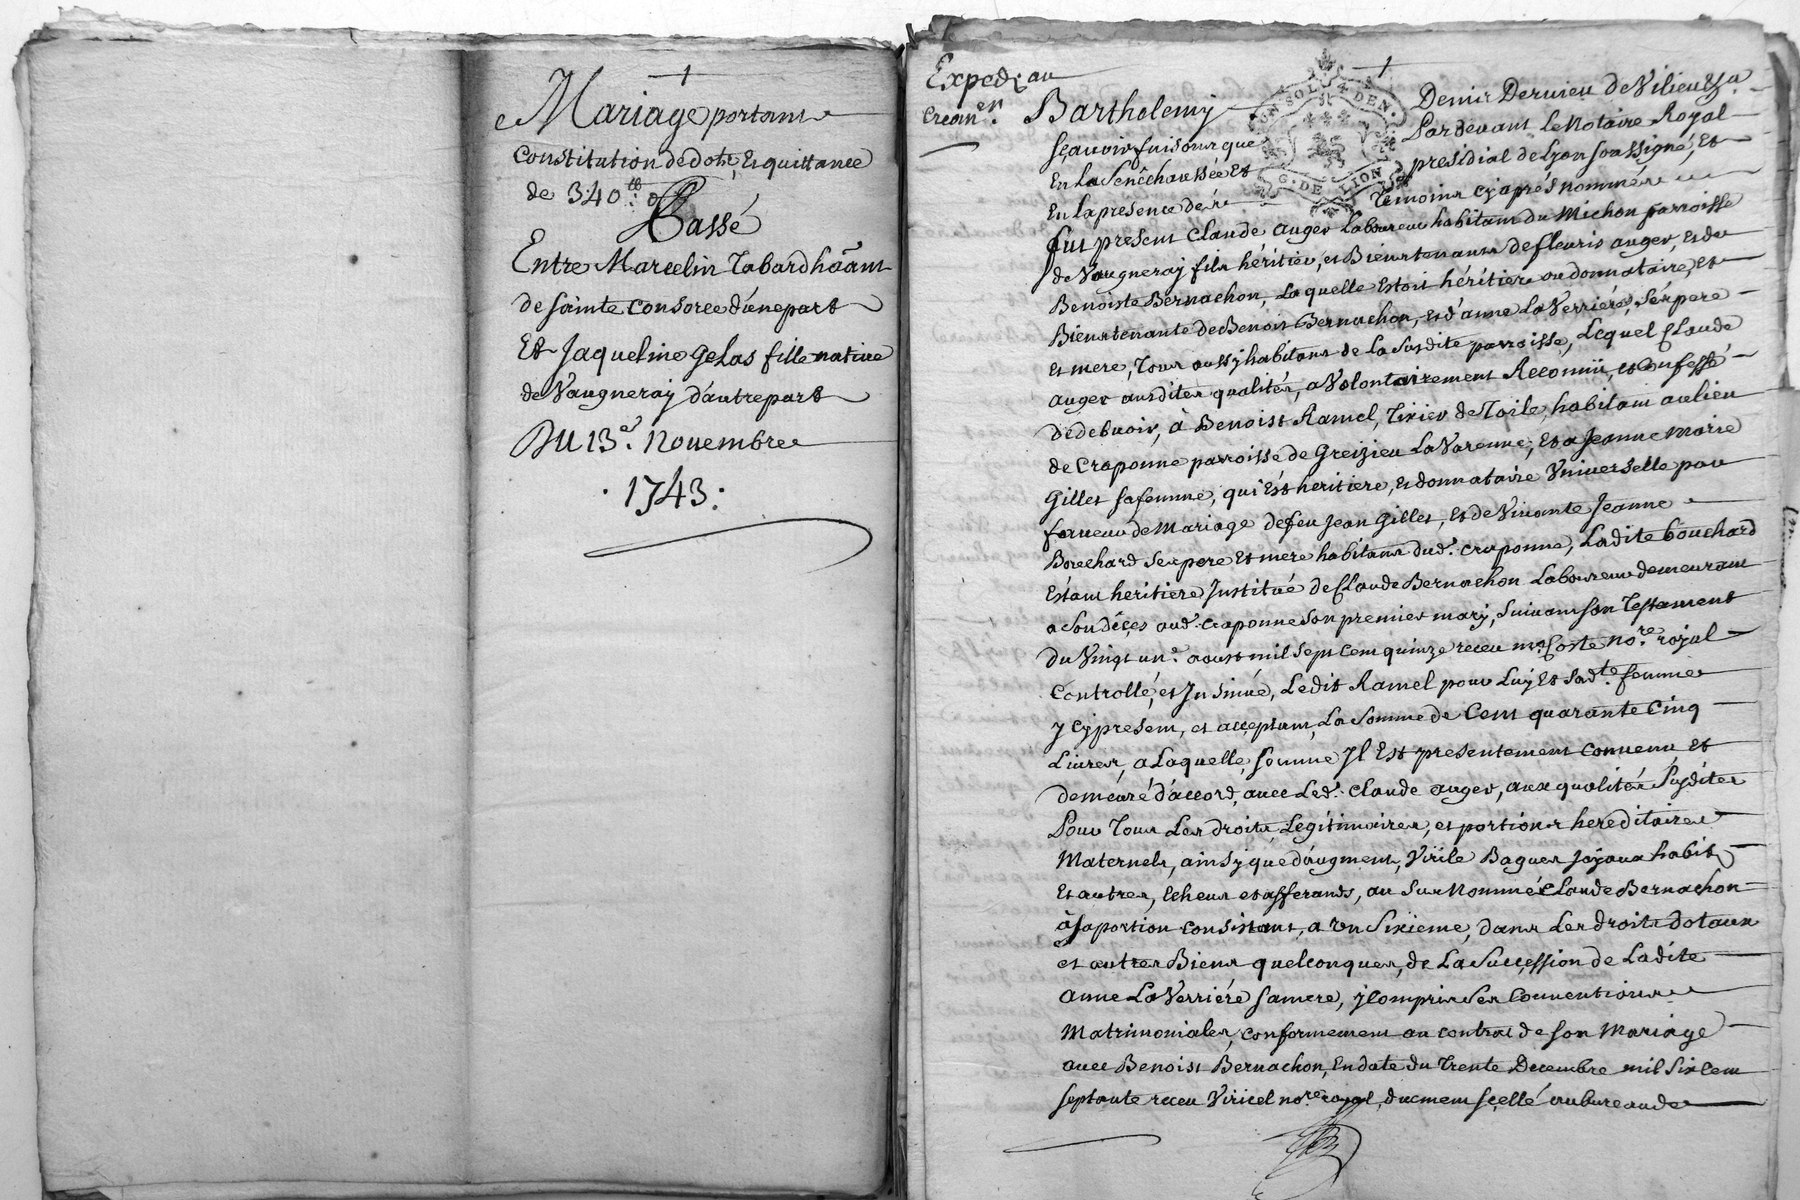 Mariage portant
constitution de dote, et quittance
de 340.tt
Passé
Entre Marcelin Tabard hãant
de sainte consorce d'une part
Et Jaqueline Gelas fille native
de Vaugneray d'autre part
Du 13.e Novembre
1743.
Exped. au
crean.er
Barthelemy Denis Dervieu de Vilieu Sr.
sçavoir faisons que Pardevant Le Notaire Royal
En La Senêchaussée et presidial de Lyon soussigné, et
En la presence de Temoins cy aprés nommés
fut present Claude auger Laboureur habitant du Michon parroisse
de Vaugneray fils héritier, et Bienstenant de fleuris auger, et de
Benoiste Bernachon, Laquelle Estoit héritiere ou donnataire, et
Bienstenante de Benoist Bernachon, et d'anne La Verriére, ses pere
et mere, Tous aussy habitans de La Susdite parroisse, Lequel Claude
auger ausdites qualités, a Volontairement Reconnü, et Confessé
de debvoir, à Benoist Ramel, Tixier de Toile, habitant au lieu
de Craponne parroisse de Greizieu La Varenne, et a Jeanne Marie
Gilles sa femme, qui Est heritiere, et donnataire Vniverselle par
faveur de Mariage de feu Jean Gilles, et de Vivante Jeanne
Bouchard ses pere et mere habitans dud. craponne, Ladite bouchard
Estant héritiere Instituée de Claude Bernachon Laboureur demeurant
a son décès aud. craponne son premier mary, suivant son Testament
du Vingt un.e aoust mil sept cent quinze receu me Coste nore. royal
Controllé, et Insinué, Ledit Ramel pour Luy et sadte. femme
y cy present, et acceptant, La Somme de Cent quarante Cinq
Livres, a Laquelle, somme Il Est presentement convenu et
demeuré d'accord, avec Led. Claude auger, aux qualités Susdites
Pour Tous Les droits, Legitimaires, et portions hereditaires
Maternels, ainsy que d'augment, Virile Bagues Joyaux habits
et autres, écheus et afferants, au Surnommé Claude Bernachon
à sa portion consistant, a Vn Sixieme, dans Les droits dotaux
et autres Biens quelconques, de La Succession de Ladite
anne La Verriére sa mere, y compris Ses Conventions
Matrimoniales, conformement au contrat de son Mariage
avec Benoist Bernachon, En date du Trente Decembre mil Six Cent
septante receu Viricel nore royal, düement sçellé au bureau de